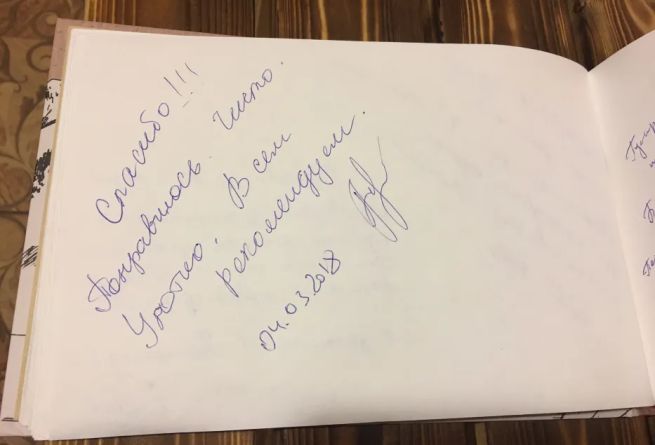 Спасибо!!!
Понравилось. Чисто.
Уютно. Всем
рекомендуем.
04.03.2018